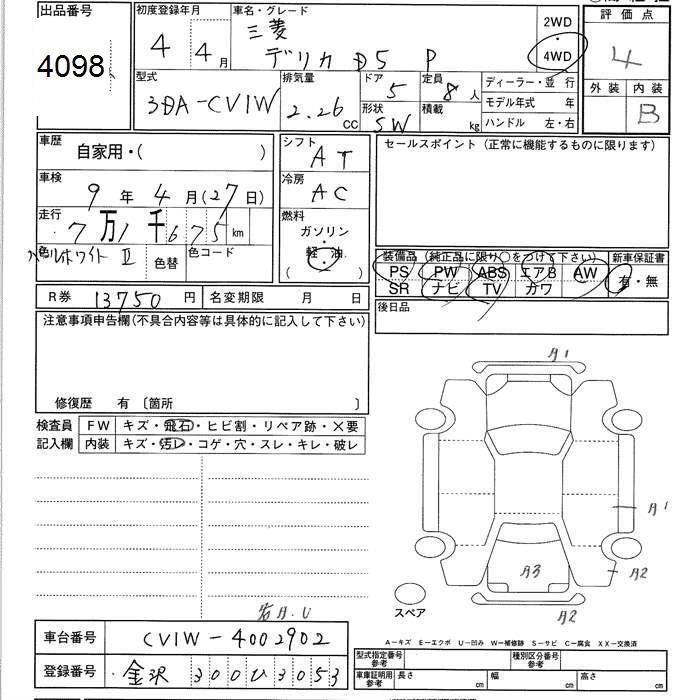 出品番号
4098
初度登録年月
4 年 4 月
車名・グレード
三菱
デリカ D5 P
2WD
・
4WD
評価点
4
外装 内装
B
型式
3DA-CV1W
排気量
2.26 CC
ドア
5
形状
SW
定員
8 人
積載
kg
ディーラー・並行
モデル年式 年
ハンドル 左・右
車歴
自家用・( )
車検
9 年 4 月 (27日)
走行
7万1千675 km
色
パールホワイトII
色替
色コード
シフト
AT
冷房
AC
燃料
ガソリン
・
軽油
( )
セールスポイント (正常に機能するものに限ります)
装備品 (純正品に限り○をつけて下さい)
新車保証書
PS PW ABS エアB AW
有・無
SR ナビ TV カワ
後日品
R券 13750 円
名変期限 月 日
注意事項申告欄(不具合内容等は具体的に記入して下さい)
修復歴 有 〔箇所 〕
検査員
記入欄
FW キズ・飛石・ヒビ割・リペア跡・×要
内装 キズ・汚レ・コゲ・穴・スレ・キレ・破レ
A1
A1
A3
A2
A2
スペア
A−キズ E−エクボ U−凹み W−補修跡 S−サビ C−腐食 XX−交換済
車台番号
CV1W-4002902
登録番号
金沢 300 ひ 3053
型式指定番号
参考
種別区分番号
参考
車庫証明用
参考
長さ cm
幅 cm
高さ cm